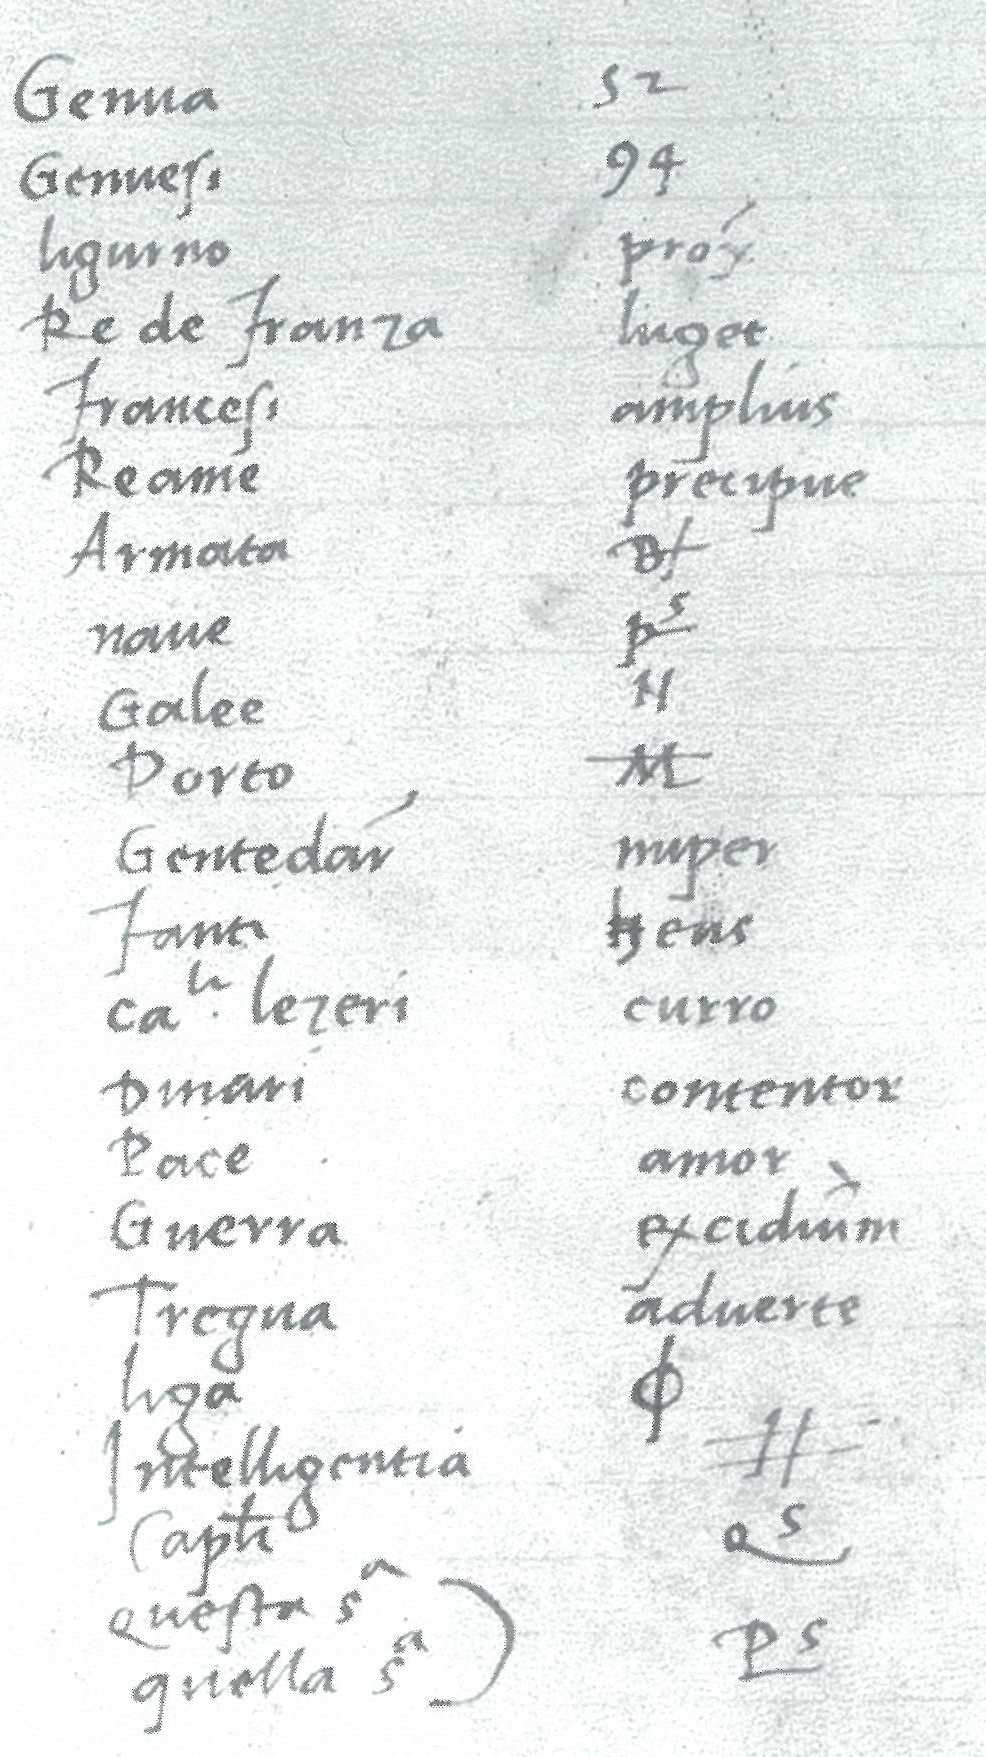 Genua 52
Genuesi 94
ligurno
Re de Franza luget
Francesi amplius
Reame precipue
Armata
naue
Galee
Porto M
Gentedar nuper
Fanti
ca li. lezeri curro
Dinari contentor
Pace amor
Guerra excidium
Tregua aduerte
liga ϕ
Intelligentia #
Capti
questa sa
quella sa ps